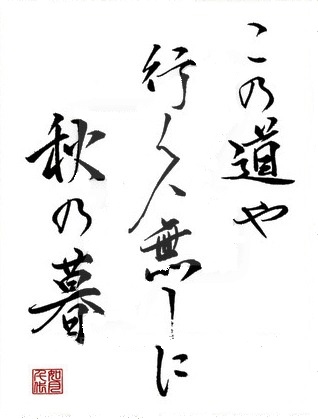 この道や
行く人無しに
秋の暮